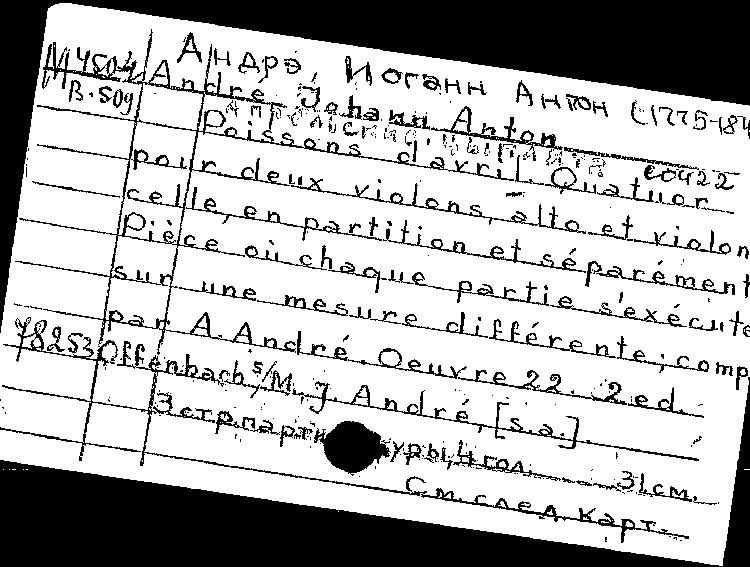 Андрэ, Иоганн Антон (1775-184
М 4504 André Johann Anton
В.509
Poissons d'avril. Quatuor
pour deux violons, alto et violon
celle, en partition et séparément
Pièce où chaque partie s'exécute
sur une mesure différente; comp
par A. André. Oeuvre 22. 2 ed.
78253 Offenbach s/M., J. André, [s.a.].
3 стр. парти уры, 4 гол. 31 см.
См. след. карт.